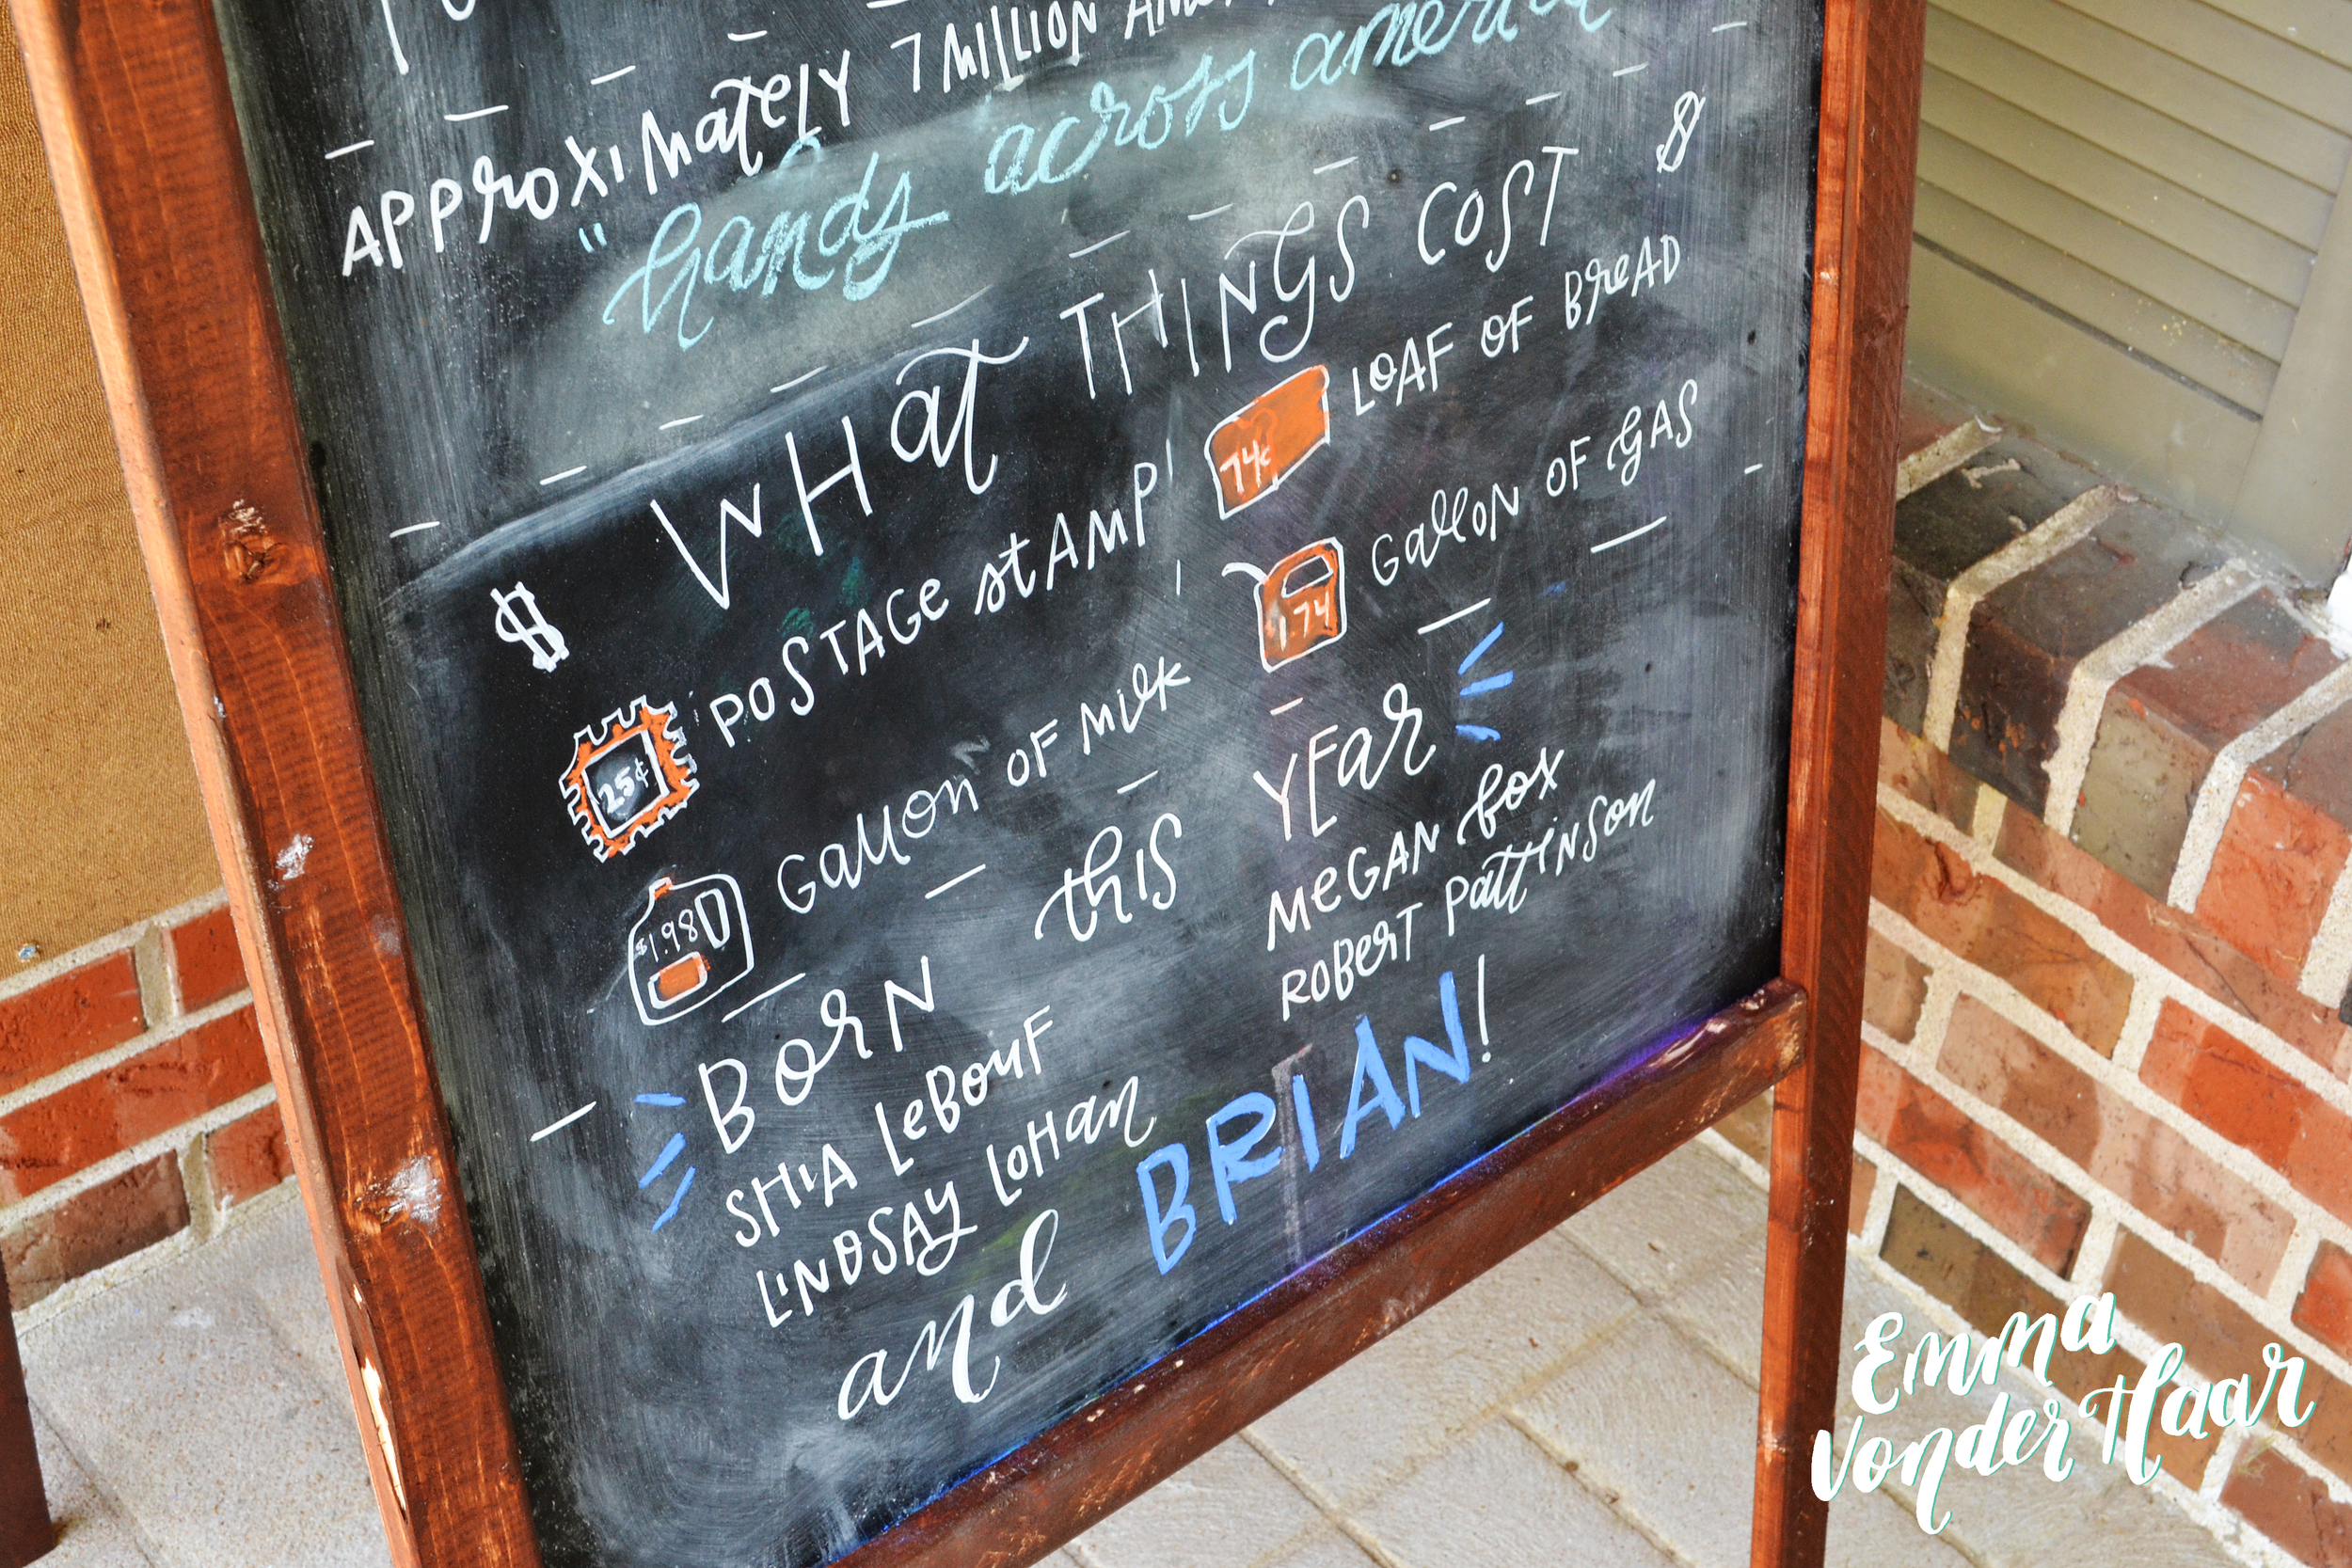 APPROXIMATELY 7 MILLION
"hands across america
$ WHAT THINGS COST $
25¢ POSTAGE STAMP
74¢ LOAF OF BREAD
$1.98 GALLON OF MILK
.74 GALLON OF GAS
BORN this YEAR
SHIA LEBOUF
MEGAN FOX
LINDSAY LOHAN
ROBERT PATTINSON
and BRIAN!
Emma
Vonder Haar